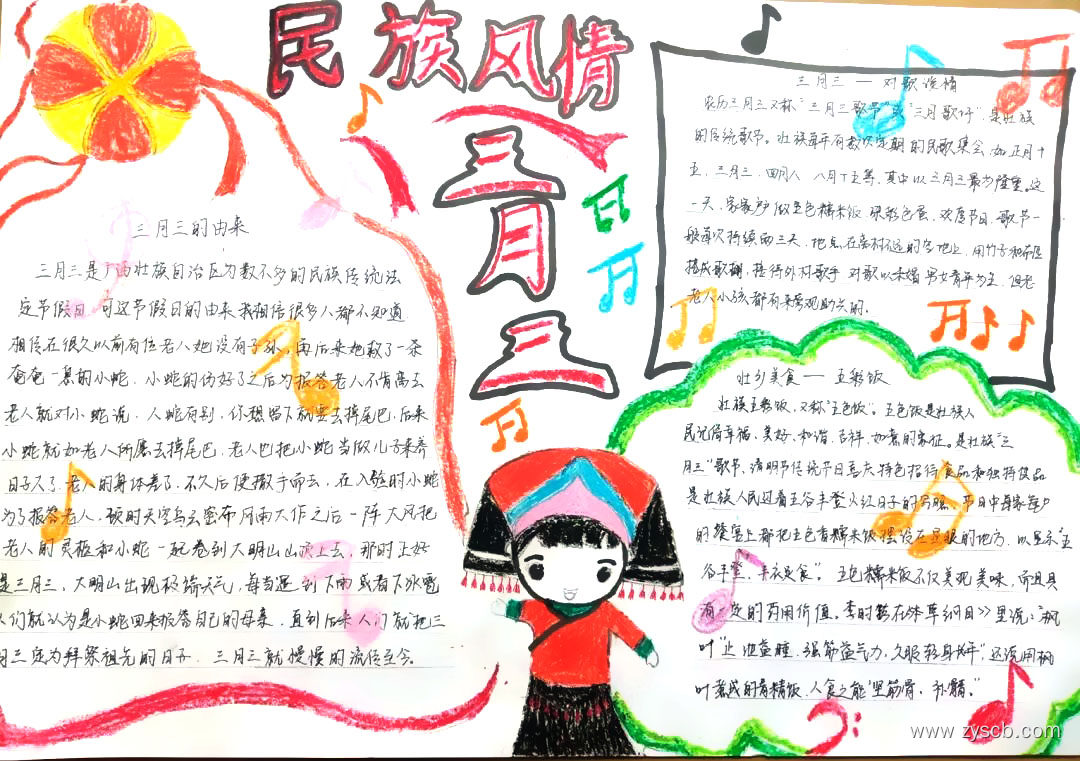 民族风情
三月三
三月三的由来
三月三是广西壮族自治区为数不多的民族传统法
定节假日，可这节假日的由来我相信很多人都不知道
相传在很久以前有位老人她没有子孙，再后来她救了一条
奄奄一息的小蛇，小蛇的伤好了之后为报答老人不肯离去
老人就对小蛇说，人蛇有别，你想留下就要去掉尾巴，后来
小蛇就如老人所愿去掉尾巴，老人也把小蛇当做儿子来养
日子久了，老人的身体差了，不久后便撒手而去，在入殓时小蛇
为了报答老人，顿时天空乌云密布风雨大作之后一阵大风把
老人的灵柩和小蛇一起卷到大明山山顶上去，那时正好
是三月三，大明山出现极端天气，每当遇到下雨或者下冰雹
人们就认为是小蛇回来报答自己的母亲，直到后来人们就把三
月三定为拜祭祖先的日子，三月三就慢慢的流传至今。
三月三 — 对歌谈情
农历三月三又称"三月三歌节"或"三月歌圩"，是壮族
的传统歌节。壮族每年有数次定期的民歌集会，如正月十
五，三月三，四月八，八月十五等，其中以三月三最为隆重。这
一天，家家户户做五色糯米饭，染彩色蛋，欢度节日，歌节一
般每次持续两三天，地点在离村不远的空地上，用竹子和布匹
搭成歌棚，接待外村歌手，对歌以未婚男女青年为主，但老
老人小孩都有来旁观助兴的。
壮乡美食——五彩饭
壮族五彩饭，又称"五色饭"。五色饭是壮族人
民视为幸福、美好、和谐、吉祥，如意的象征。是壮族"三
月三"歌节，清明节传统节日
是壮族人民过着五谷丰登火红日子的写照，节日中每家每户
的餐桌上都把五色香糯米饭摆设在显眼的地方，以显示"五
谷丰登，丰衣足食"。五色糯米饭不仅美观美味，而且具
有一定的药用价值。李时珍在《本草纲目》里说："枫
叶"止泄益睡，强筋益气力，久服轻身长年"还说用枫
叶煮成的青精饭，人食之能"坚筋骨、补髓。"
www.zyscb.com